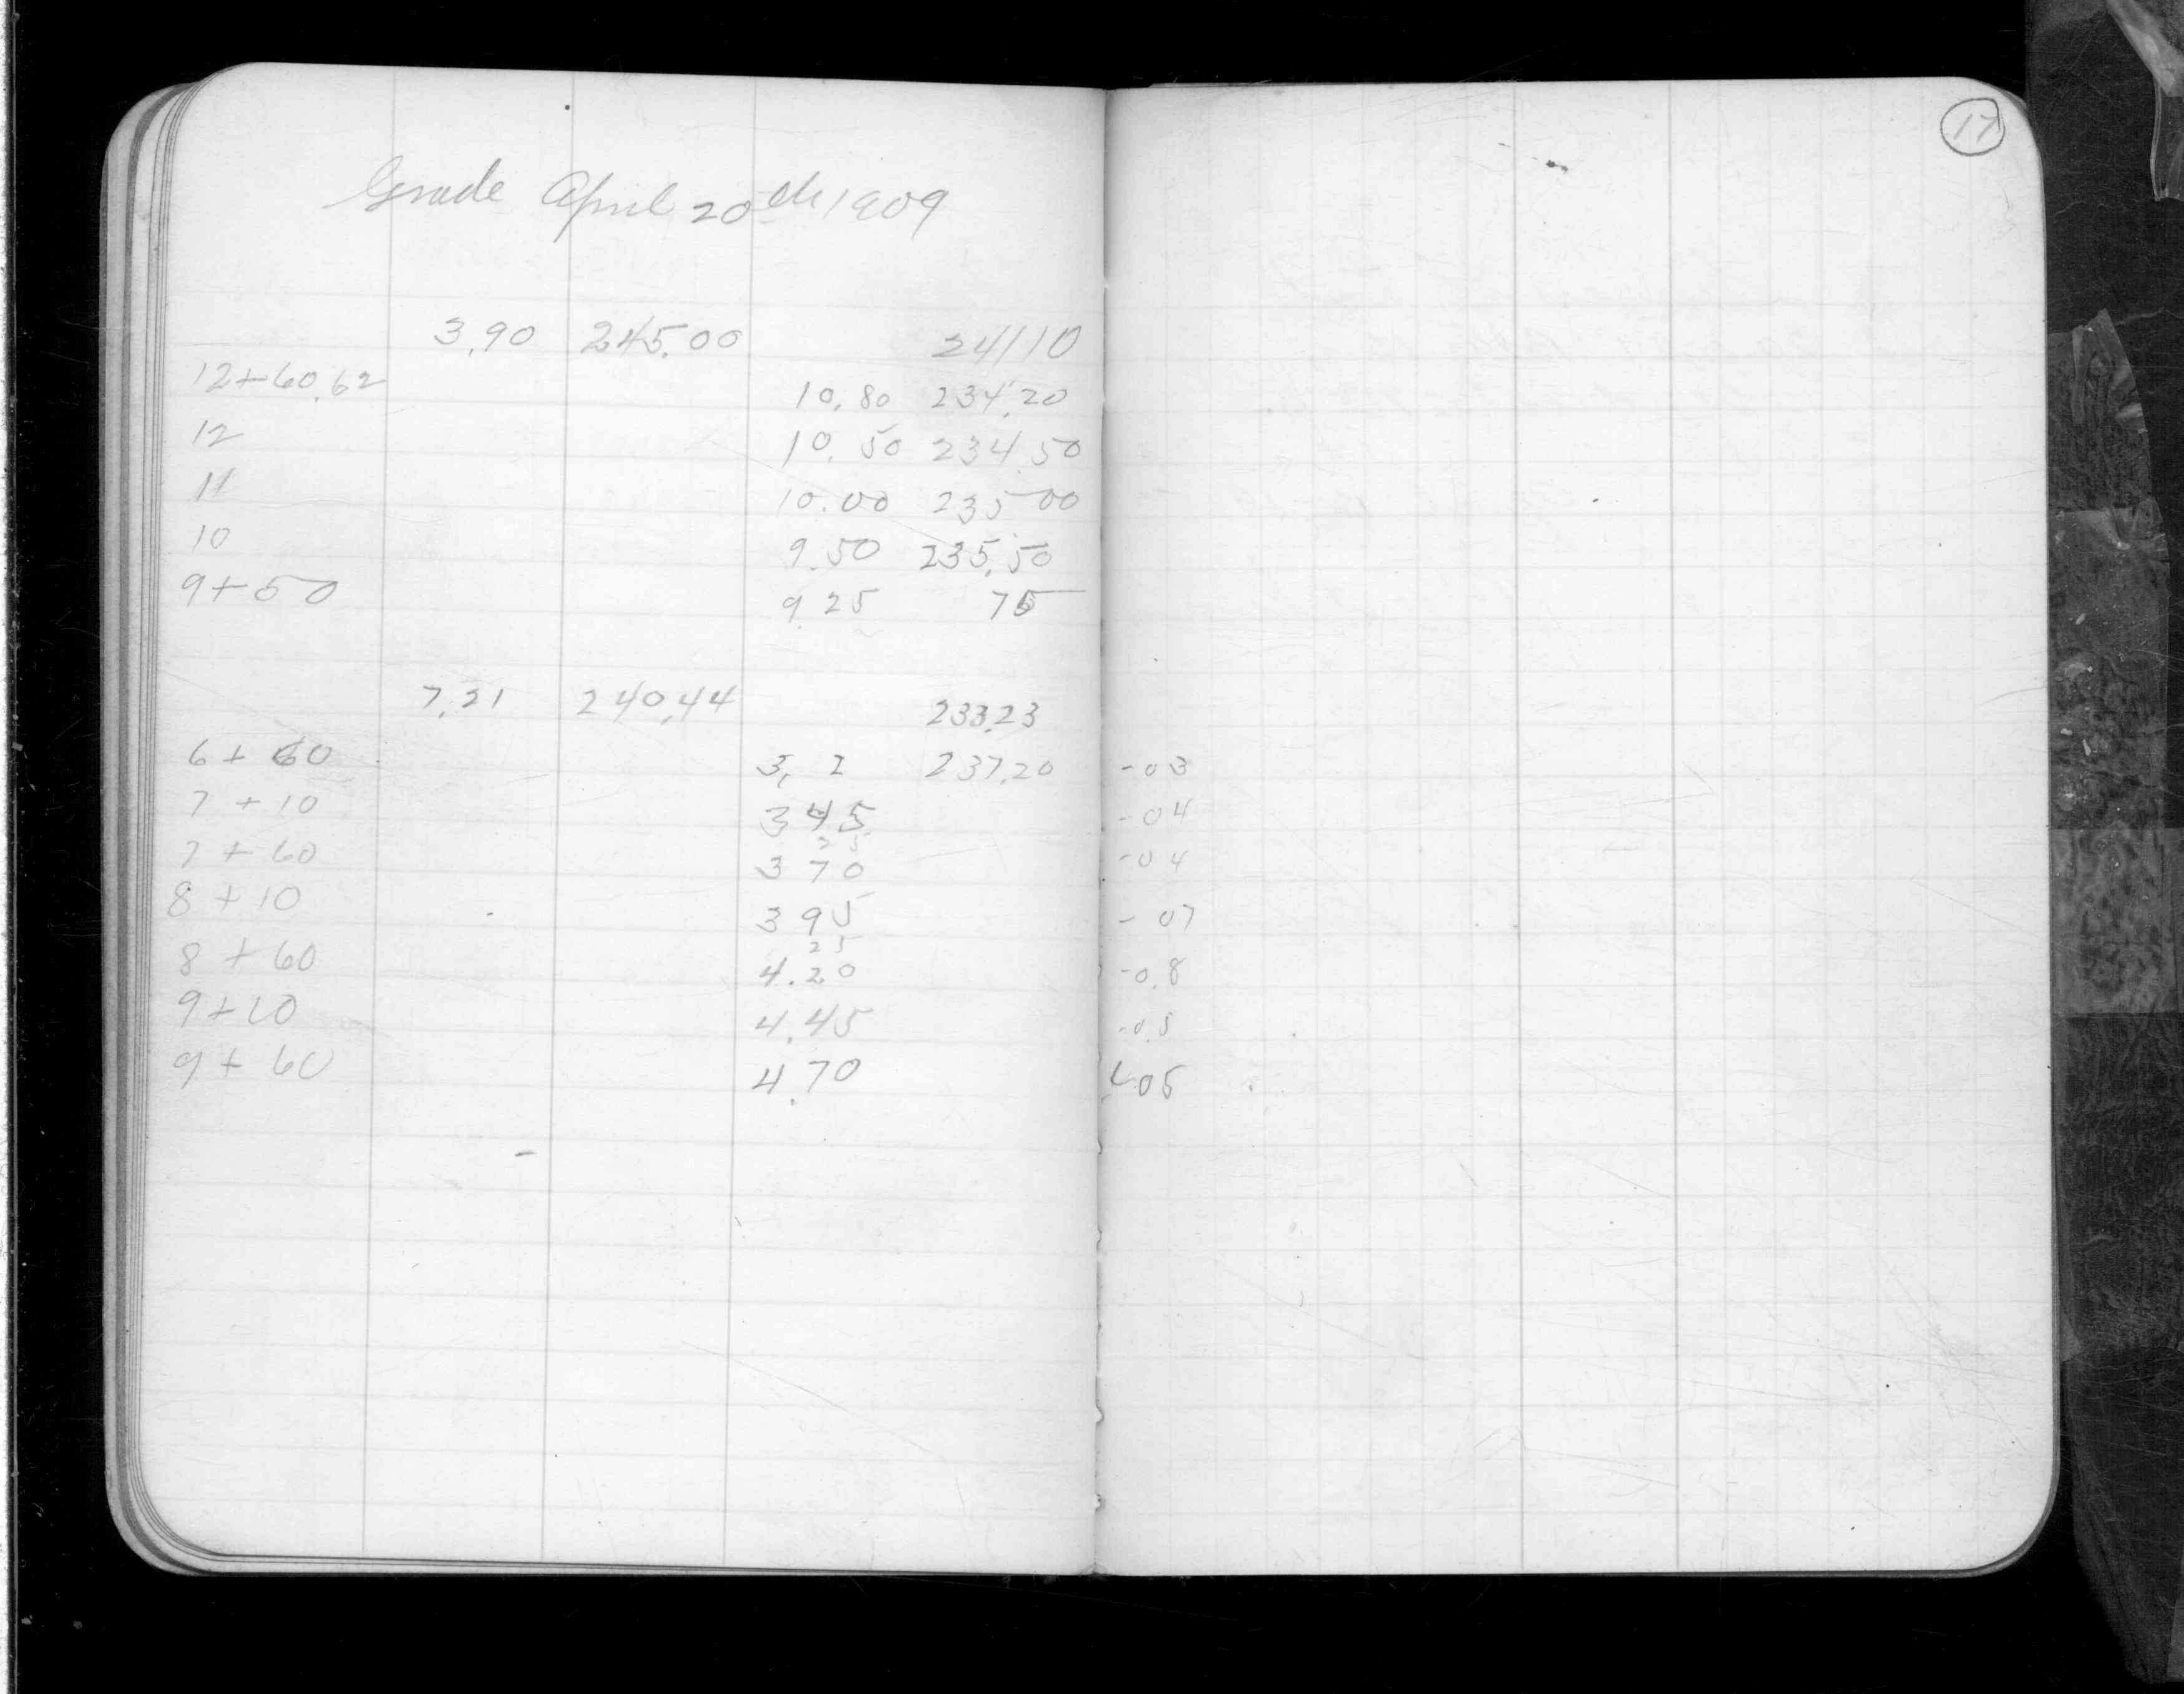 17
Grade April 20th 1909
3.90 245.00 241 10
12+60.62 10.80 234.20
12 10.50 234.50
11 10.00 235 00
10 9.50 235.50
9+50 9.25 75
7.21 240.44 233.23
6 + 60 3. 2 237.20 -03
7 + 10 3 45 -04
25
7 + 60 3 70 -04
8 + 10 3 95 - 07
25
8 + 60 4.20 -0.8
9+10 4.45 -0.5
9 + 60 4.70 -05